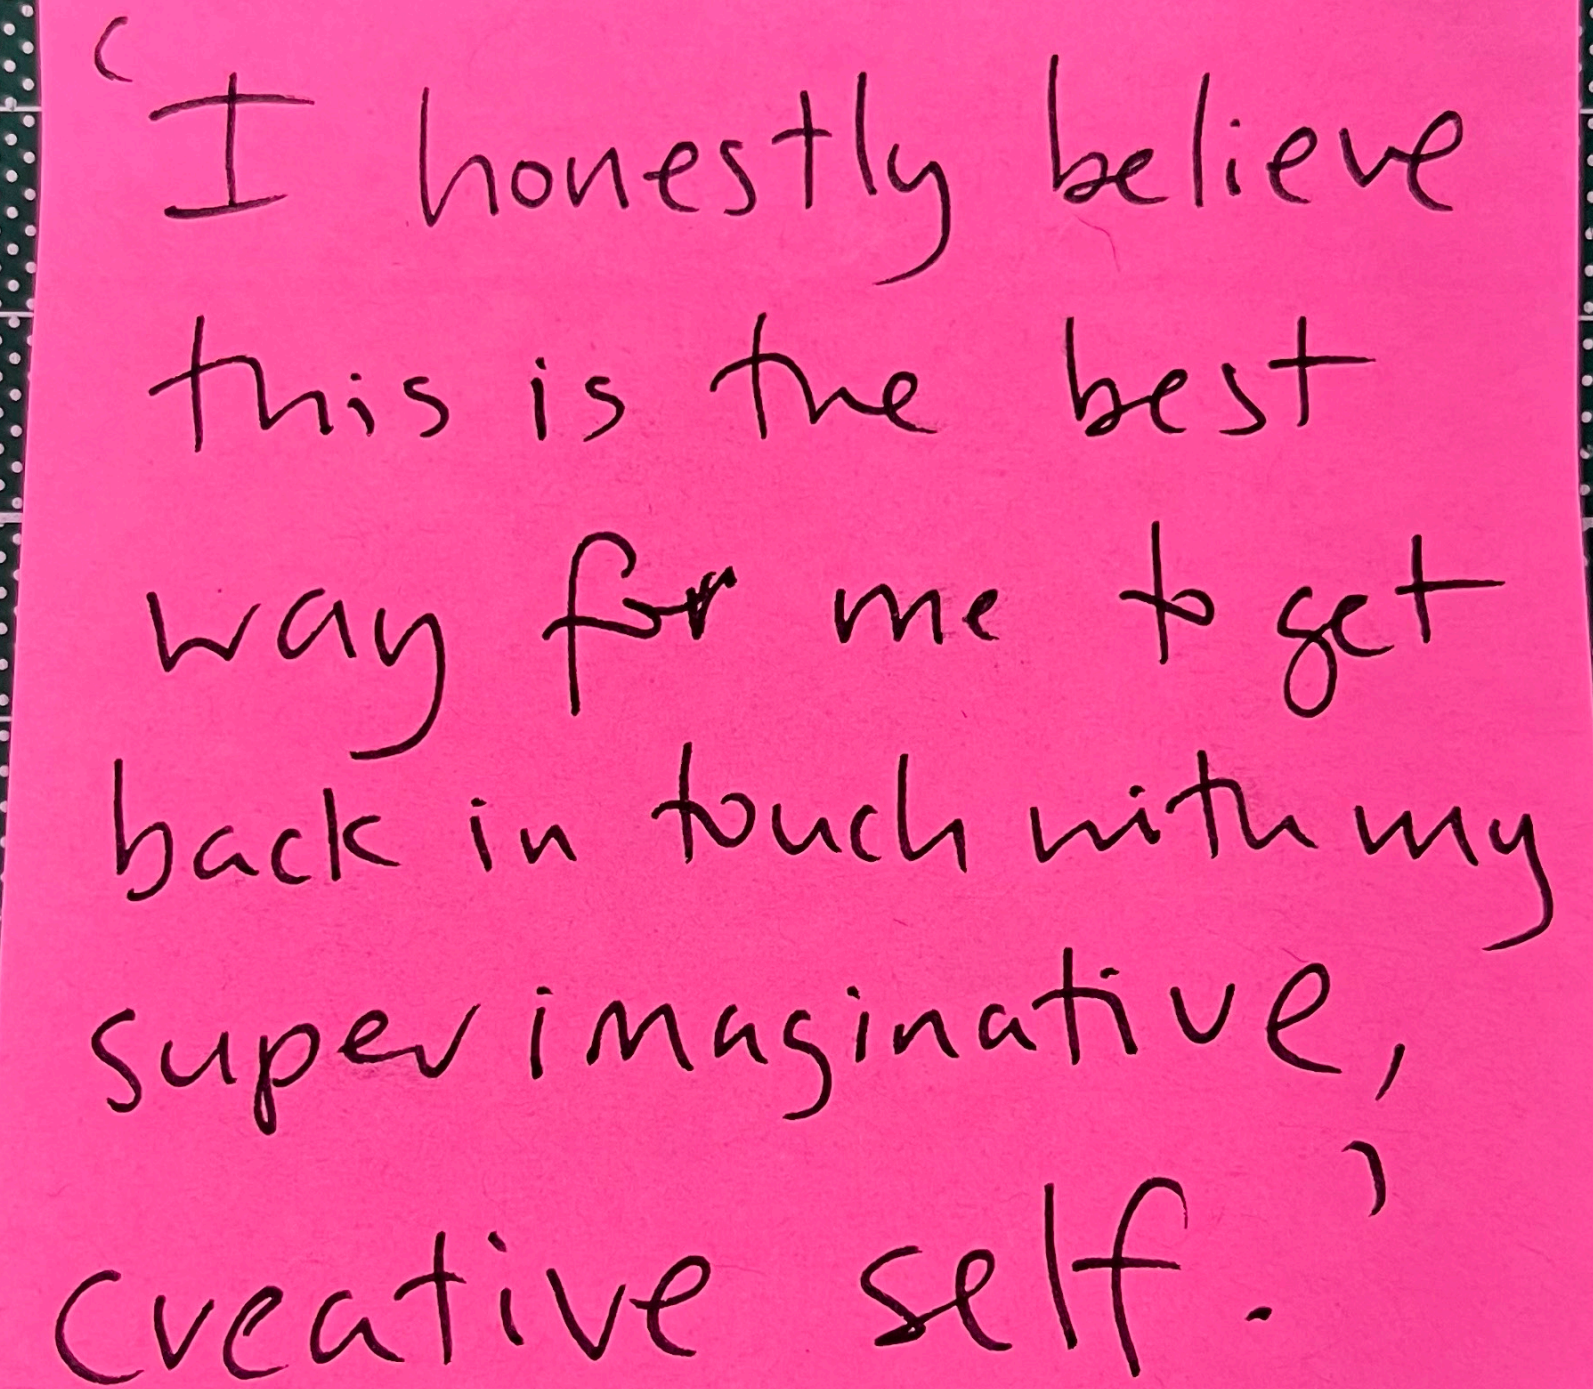 ‘I honestly believe
this is the best
way for me to get
back in touch with my
super imaginative,
creative self.’